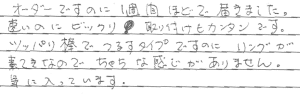 オーダーですのに1週間ほどで届きました。
速いのにビックリ 取り付けもカンタンです。
ツッパリ棒でつるすタイプですのにリングが
素てきなのでちゃちな感じがありません。
気に入っています。